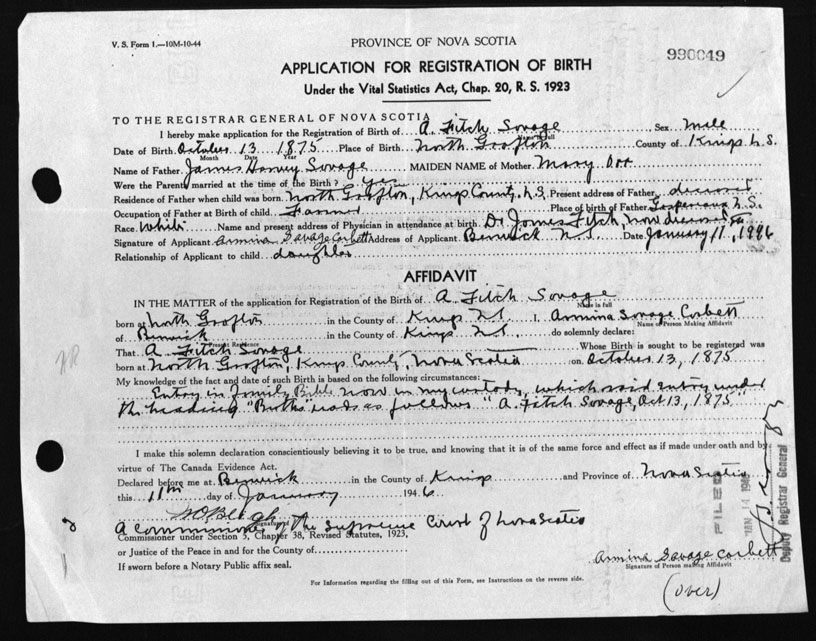 V. S. Form 1.—10M-10-44
PROVINCE OF NOVA SCOTIA
990049
APPLICATION FOR REGISTRATION OF BIRTH
Under the Vital Statistics Act, Chap. 20, R. S. 1923
TO THE REGISTRAR GENERAL OF NOVA SCOTIA
I hereby make application for the Registration of Birth of A. Fitch Savage Sex male
Name in full
Date of Birth October 13 1875 Place of Birth North Grafton County of Kings N.S.
Month Date Year
Name of Father James Harvey Savage MAIDEN NAME of Mother Mary Orr
Were the Parents married at the time of the Birth? yes
Residence of Father when child was born North Grafton, Kings County, N.S. Present address of Father deceased
Occupation of Father at Birth of child Farmer Place of birth of Father Gaspereau N.S.
Race White Name and present address of Physician in attendance at birth Dr James Fitch, now deceased
Signature of Applicant Armina Savage Corbett Address of Applicant Berwick N.S. Date January 11, 1946
Relationship of Applicant to child daughter
AFFIDAVIT
IN THE MATTER of the application for Registration of the Birth of A. Fitch Savage
Name in full
born at North Grafton in the County of Kings N.S. I, Armina Savage Corbett
Name of Person Making Affidavit
of Berwick in the County of Kings N.S. do solemnly declare:
Present Residence
That A. Fitch Savage Whose Birth is sought to be registered was
born at North Grafton, Kings County, Nova Scotia on October 13, 1875
My knowledge of the fact and date of such Birth is based on the following circumstances:
Entry in family Bible now in my custody, which said entry under
the heading "Births" reads as follows "A. Fitch Savage, Oct 13, 1875"
I make this solemn declaration conscientiously believing it to be true, and knowing that it is of the same force and effect as if made under oath and by
virtue of The Canada Evidence Act.
Declared before me at Berwick in the County of Kings and Province of Nova Scotia
this 11th day of January 1946
Signature
A Commissioner of the Supreme Court of Nova Scotia
Commissioner under Section 5, Chapter 38, Revised Statutes, 1923,
or Justice of the Peace in and for the County of
If sworn before a Notary Public affix seal.
Armina Savage Corbett
Signature of Person making Affidavit
For Information regarding the filling out of this Form, see Instructions on the reverse side.
(over)
FILED
JAN 14 1946
Deputy Registrar General